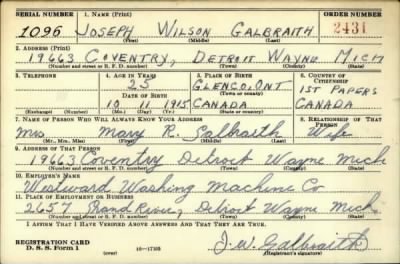 SERIAL NUMBER 1. NAME (Print) ORDER NUMBER
1096 JOSEPH WILSON GALBRAITH 2431
(First) (Middle) (Last)
2. ADDRESS (Print)
19663 COVENTRY, DETROIT WAYNE MICH
(Number and street or R. F. D. number) (Town) (County) (State)
3. TELEPHONE 4. AGE IN YEARS 5. PLACE OF BIRTH 6. COUNTRY OF CITIZENSHIP
25 GLENCO, ONT 1ST PAPERS
DATE OF BIRTH (Town or county)
10 11 1915 CANADA CANADA
(Exchange) (Number) (Mo.) (Day) (Yr.) (State or country)
7. NAME OF PERSON WHO WILL ALWAYS KNOW YOUR ADDRESS 8. RELATIONSHIP OF THAT PERSON
Mrs Mary R. Galbraith Wife
(Mr., Mrs., Miss) (First) (Middle) (Last)
9. ADDRESS OF THAT PERSON
19663 Coventry Detroit Wayne Mich
(Number and street or R. F. D. number) (Town) (County) (State)
10. EMPLOYER'S NAME
Westward Washing Machine Co
11. PLACE OF EMPLOYMENT OR BUSINESS
2657 Grand River, Detroit Wayne Mich
(Number and street or R. F. D. number) (Town) (County) (State)
I AFFIRM THAT I HAVE VERIFIED ABOVE ANSWERS AND THAT THEY ARE TRUE.
REGISTRATION CARD
D. S. S. Form 1 (over) 16—17105 J. W. Galbraith
(Registrant's signature)